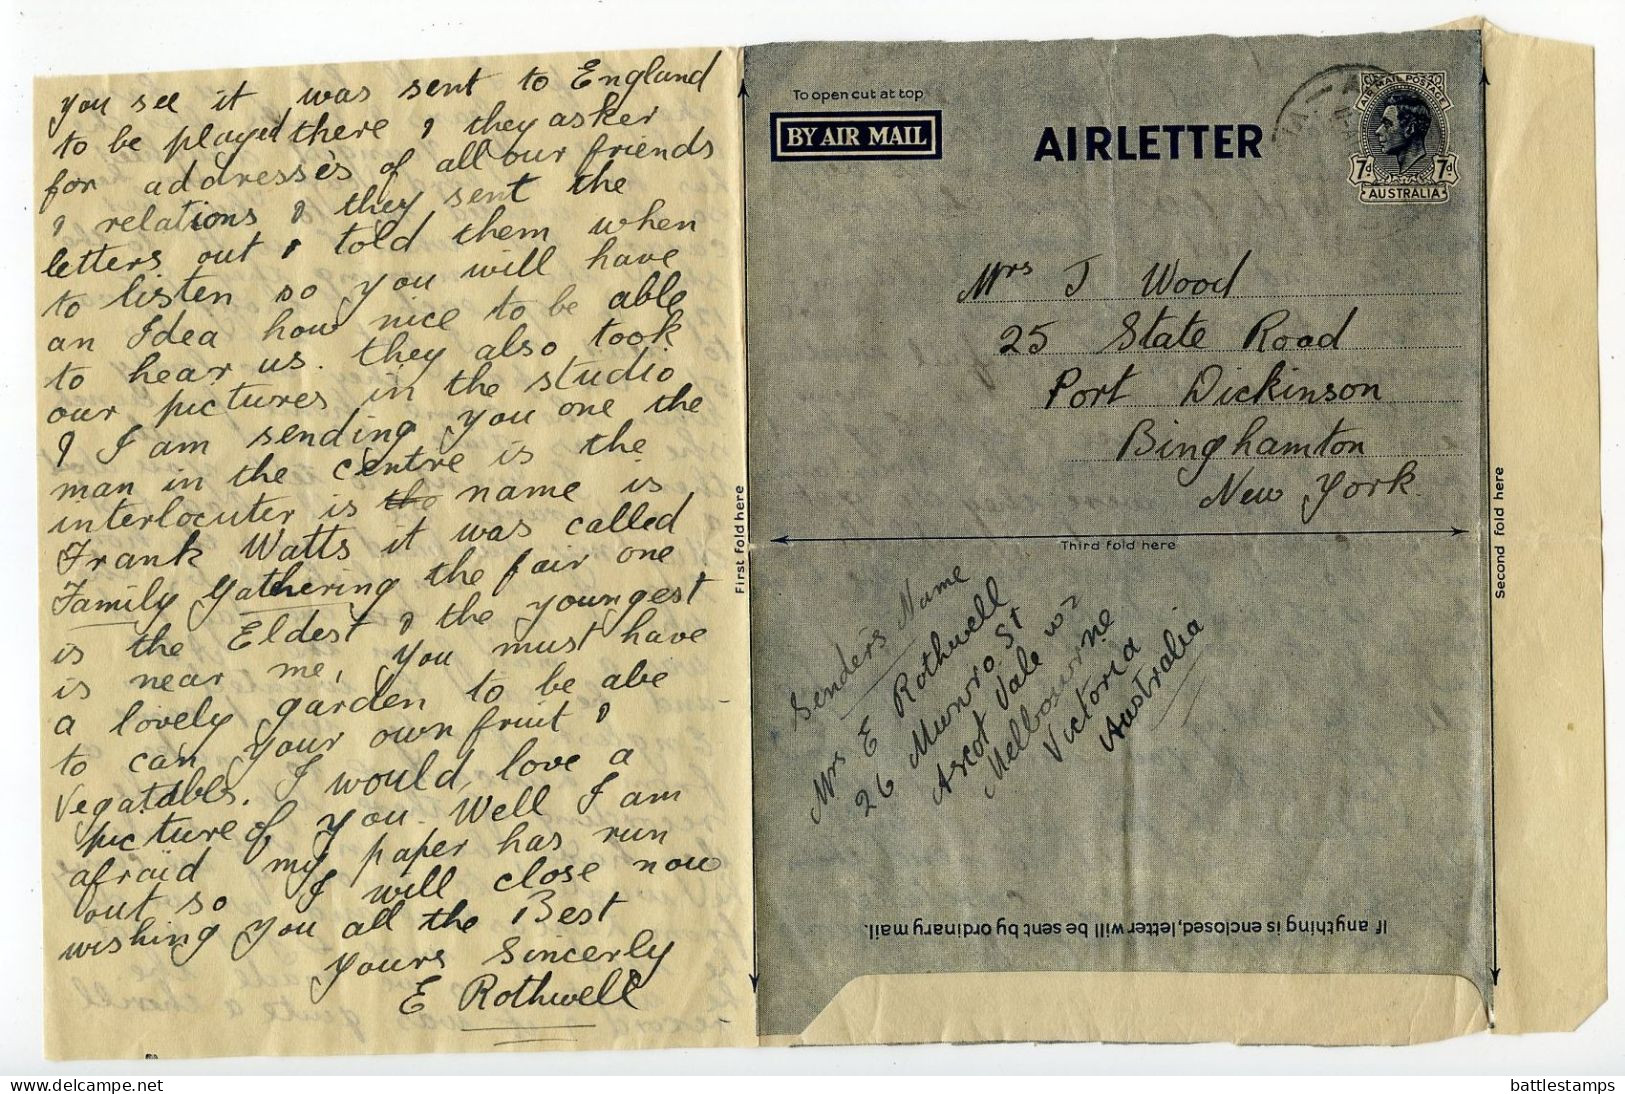 you see it was sent to England
to be played there & they asker
for addresses of all our friends
& relations & they sent the
letters out & told them when
to listen so you will have
an Idea how nice to be able
to hear us. they also took
our pictures in the studio
& I am sending you one the
man in the centre is the
interlocuter is the name is
Frank Watts it was called
Family Gathering the fair one
is the Eldest & the youngest
is near me, you must have
a lovely garden to be abe
to can your own fruit &
Vegatabls. I would love a
picture of you. Well I am
afraid my paper has run
out so I will close now
wishing you all the Best
yours Sincerly
E Rothwell
First fold here
To open cut at top
BY AIR MAIL
AIRLETTER
AIR MAIL POSTAGE
7d 7d
AUSTRALIA
Mrs J Wood
25 State Road
Port Dickinson
Binghamton
New York
Third fold here
Second fold here
Senders Name
Mrs E Rothwell
26 Munro St
Ascot Vale W2
Melbourne
Victoria
Australia
If anything is enclosed, letter will be sent by ordinary mail.
delcampe.net
battlestamps